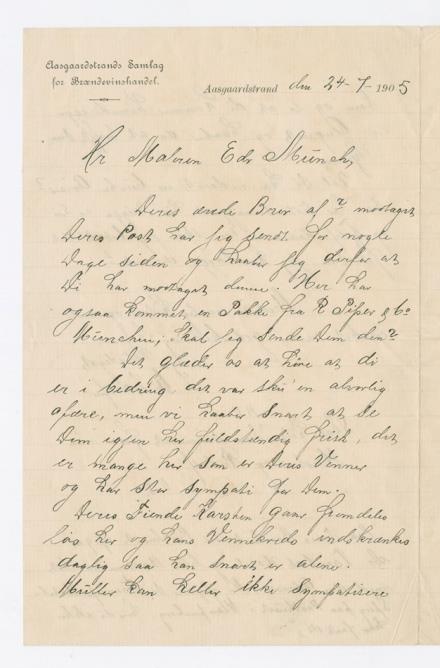 Aasgaardstrands Samlag
for Brændevinshandel.
Aasgaardstrand den 24-7-1905
Hr Maleren Edv Münch,
Deres ærede Brev af ? modtaget
Deres Post har jeg sendt for nogle
Dage siden og haaber jeg derfor at
Di har modtaget denne. Her har
ogsaa kommet en Pakke fra R Piper & Co
München, Skal jeg sende Dem den?
Det glæder os at høre at di
er i bedring det var en alvorlig
afære, men vi haaber snart at se
Dem igjen her fuldstændig frisk, det
er mange her som er Deres Venner
og har stor sympati for Dem.
Deres Fiende Karsten gaar fremdeles
løs her og hans Vennekreds indskrænkes
daglig saa han snart er alene.
Müller kan heller ikke sympatisere